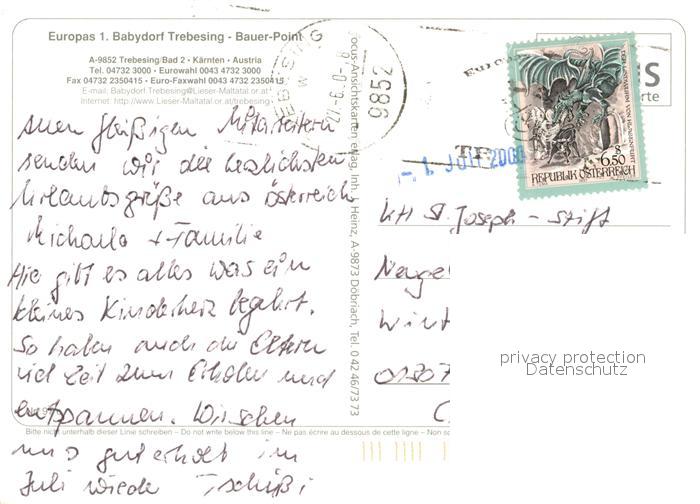 Europas 1. Babydorf Trebesing - Bauer-Point
A-9852 Trebesing/Bad 2 • Kärnten • Austria
Tel. 04732 3000 • Eurowahl 0043 4732 3000
Fax 04732 2350415 • Euro-Faxwahl 0043 4732 2350415
E-mail: Babydorf.Trebesing@Lieser-Maltatal.or.at
Internet: http://www.Lieser-Maltatal.or.at/trebesing
allen fleißigen Mitarbeitern
senden wir die herzlichsten
Urlaubsgrüße aus Österreich
Michaela + Familie
Hier gibt es alles was ein
kleines Kinderherz begehrt.
So haben auch die Eltern
viel Zeit zum Erholen und
entspannen. Wir sehen
uns gut erholt im
Juli wieder Tschüß!
Focus-Ansichtskarten eNag, Inh. Heinz, A-9873 Döbriach, Tel. 04246/7373
9852
- 1. JULI 2000
DER LINDWURM VON KLAGENFURT
S 6.50
REPUBLIK ÖSTERREICH
KH St. Joseph - Stift
0130
privacy protection
Datenschutz
Bitte nicht unterhalb dieser Linie schreiben – Do not write below this line – Ne pas écrire au dessous de cette ligne – Non